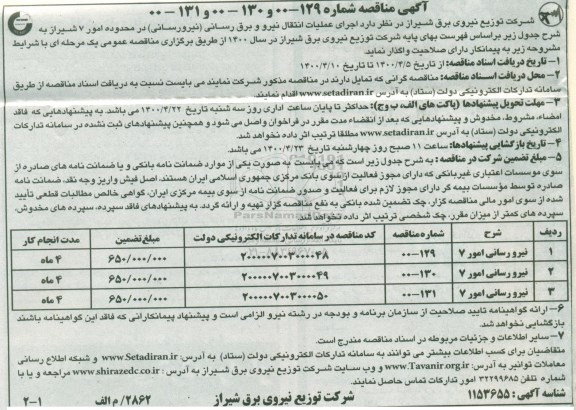 آگهی مناقصه شماره ۱۲۹-۰۰ و ۱۳۰-۰۰ و ۱۳۱-۰۰
شرکت توزیع نیروی برق شیراز در نظر دارد اجرای عملیات انتقال نیرو و برق رسانی (نیرورسانی) در محدوده امور ۷ شیراز به
شرح جدول زیر براساس فهرست بهای پایه شرکت توزیع نیروی برق شیراز در سال ۱۴۰۰ از طریق برگزاری مناقصه عمومی یک مرحله ای با شرایط
مشروحه زیر به پیمانکار دارای صلاحیت واگذار نماید.
۱- تاریخ دریافت اسناد مناقصه: از تاریخ ۱۴۰۰/۴/۵ تا تاریخ ۱۴۰۰/۴/۱۰
۲- محل دریافت اسناد مناقصه: مناقصه گرانی که تمایل دارند در مناقصه مذکور شرکت نمایند می بایست نسبت به دریافت اسناد مناقصه از طریق
سامانه تدارکات الکترونیکی دولت (ستاد) به آدرس www.setadiran.ir اقدام نمایند.
۳- مهلت تحویل پیشنهادها (پاکت های الف، ب و ج): حداکثر تا پایان ساعت اداری روز سه شنبه تاریخ ۱۴۰۰/۴/۲۲ می باشد به پیشنهادهایی که فاقد
امضاء، مشروط، مخدوش و پیشنهادهایی که بعد از انقضاء مدت مقرر در فراخوان واصل می شود و همچنین پیشنهادهای ثبت نشده در سامانه تدارکات
الکترونیکی دولت (ستاد) به آدرس www.setadiran.ir مطلقا ترتیب اثر داده نخواهد شد.
۴- تاریخ بازگشایی پیشنهادها: ساعت ۱۱ صبح روز چهارشنبه تاریخ ۱۴۰۰/۴/۲۳ می باشد.
۵- مبلغ تضمین شرکت در مناقصه: به شرح جدول زیر است که می بایست به صورت یکی از موارد ضمانت نامه بانکی و یا ضمانت نامه های صادره از
سوی موسسات اعتباری غیربانکی که دارای مجوز فعالیت از سوی بانک مرکزی جمهوری اسلامی ایران هستند، اصل فیش واریز وجه نقد، ضمانت نامه
صادره توسط مؤسسات بیمه گر دارای مجوز لازم برای فعالیت و صدور ضمانت نامه از سوی بیمه مرکزی ایران، گواهی خالص مطالبات قطعی تأیید
شده از سوی امور مالی مناقصه گزار، چک تضمین شده بانکی به نفع مناقصه گزار تهیه و ارائه گردد. به پیشنهادهای فاقد سپرده، سپرده های مخدوش،
سپرده های کمتر از میزان مقرر، چک شخصی ترتیب اثر داده نخواهد شد.
ردیف شرح شماره مناقصه کد مناقصه در سامانه تدارکات الکترونیکی دولت مبلغ تضمین مدت انجام کار
۱ نیرو رسانی امور ۷ ۱۲۹-۰۰ ۲۰۰۰۰۰۷۰۰۳۰۰۰۰۴۸ ۶۵۰/۰۰۰/۰۰۰ ۴ ماه
۲ نیرو رسانی امور ۷ ۱۳۰-۰۰ ۲۰۰۰۰۰۷۰۰۳۰۰۰۰۴۹ ۶۵۰/۰۰۰/۰۰۰ ۴ ماه
۳ نیرو رسانی امور ۷ ۱۳۱-۰۰ ۲۰۰۰۰۰۷۰۰۳۰۰۰۰۵۰ ۶۵۰/۰۰۰/۰۰۰ ۴ ماه
۶- ارائه گواهینامه تایید صلاحیت از سازمان برنامه و بودجه در رشته نیرو الزامی است و پیشنهاد پیمانکارانی که فاقد این گواهینامه باشند
بازگشایی نخواهد شد.
۷- سایر اطلاعات و جزئیات مربوطه در اسناد مناقصه مندرج است.
متقاضیان برای کسب اطلاعات بیشتر می توانند به سامانه تدارکات الکترونیکی دولت (ستاد) به آدرس: www.Setadiran.ir و شبکه اطلاع رسانی
معاملات توانیر به آدرس: www.Tavanir.org.ir و وب سایت شرکت توزیع نیروی برق شیراز به آدرس www.shirazedc.co.ir مراجعه و یا با
شماره تلفن ۳۲۲۹۹۶۸۵ امور تدارکات تماس حاصل نمایند.
شناسه آگهی: ۱۱۵۳۶۵۵ شرکت توزیع نیروی برق شیراز ۲۸۶۲/م الف ۲-۱